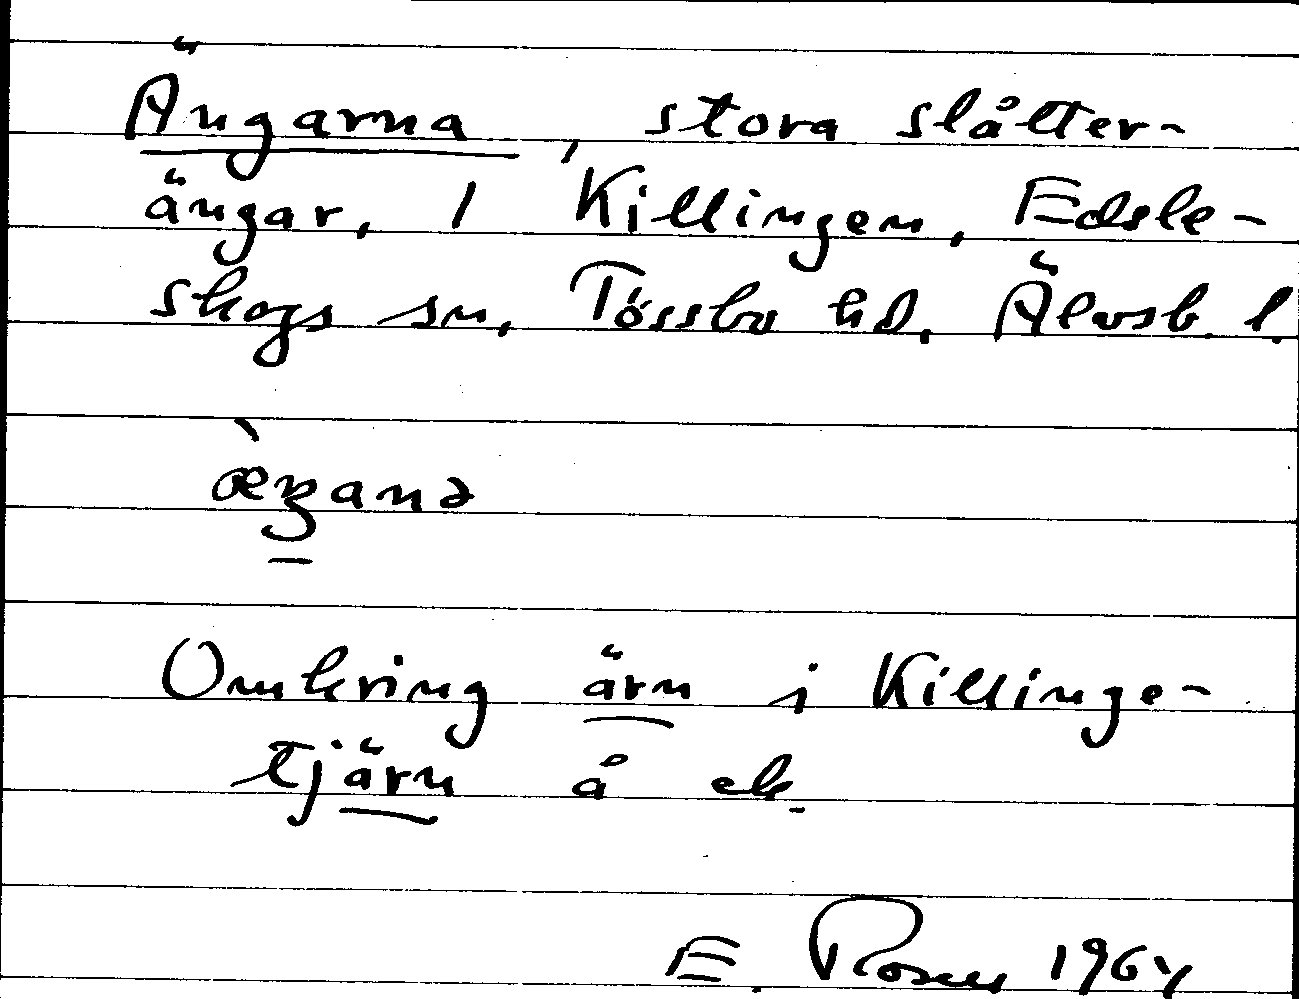 Ängarna, stora slåtter-
ängar, 1 Killingen, Edsle-
skogs sn, Tössbo hd. Älvsb. l.
æ̀ŋana
Omkring ärn i Killinge-
tjärn å ek.
E. Rosell 1964